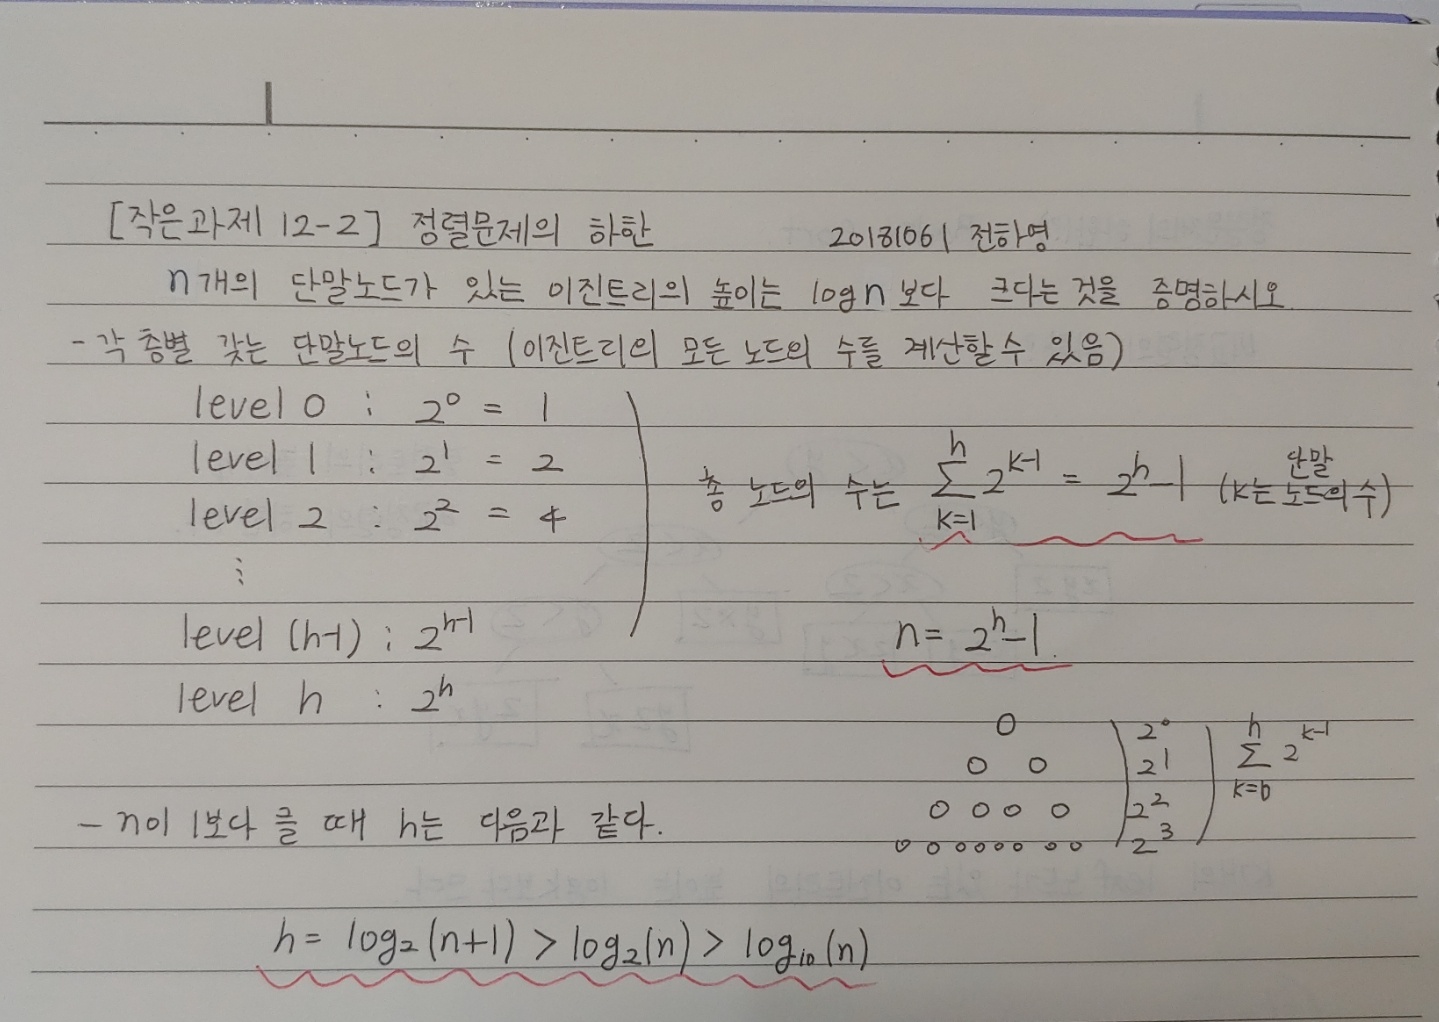 [작은과제 12-2] 정렬문제의 하한 20181061 전하영
n개의 단말노드가 있는 이진트리의 높이는 log n 보다 크다는 것을 증명하시오.
- 각 층별 갖는 단말노드의 수 (이진트리의 모든 노드의 수를 계산할 수 있음)
level 0 : 2⁰ = 1
level 1 : 2¹ = 2
level 2 : 2² = 4
⋮
level (h-1) : 2^(h-1)
level h : 2^h
총 노드의 수는 ∑_{k=1}^{h} 2^(k-1) = 2^h - 1 (k는 단말 노드의 수)
n = 2^h - 1.
2⁰
2¹
2²
2³
∑_{k=0}^{h} 2^(k-1)
- n이 1보다 클 때 h는 다음과 같다.
h = log₂(n+1) > log₂(n) > log₁₀(n)